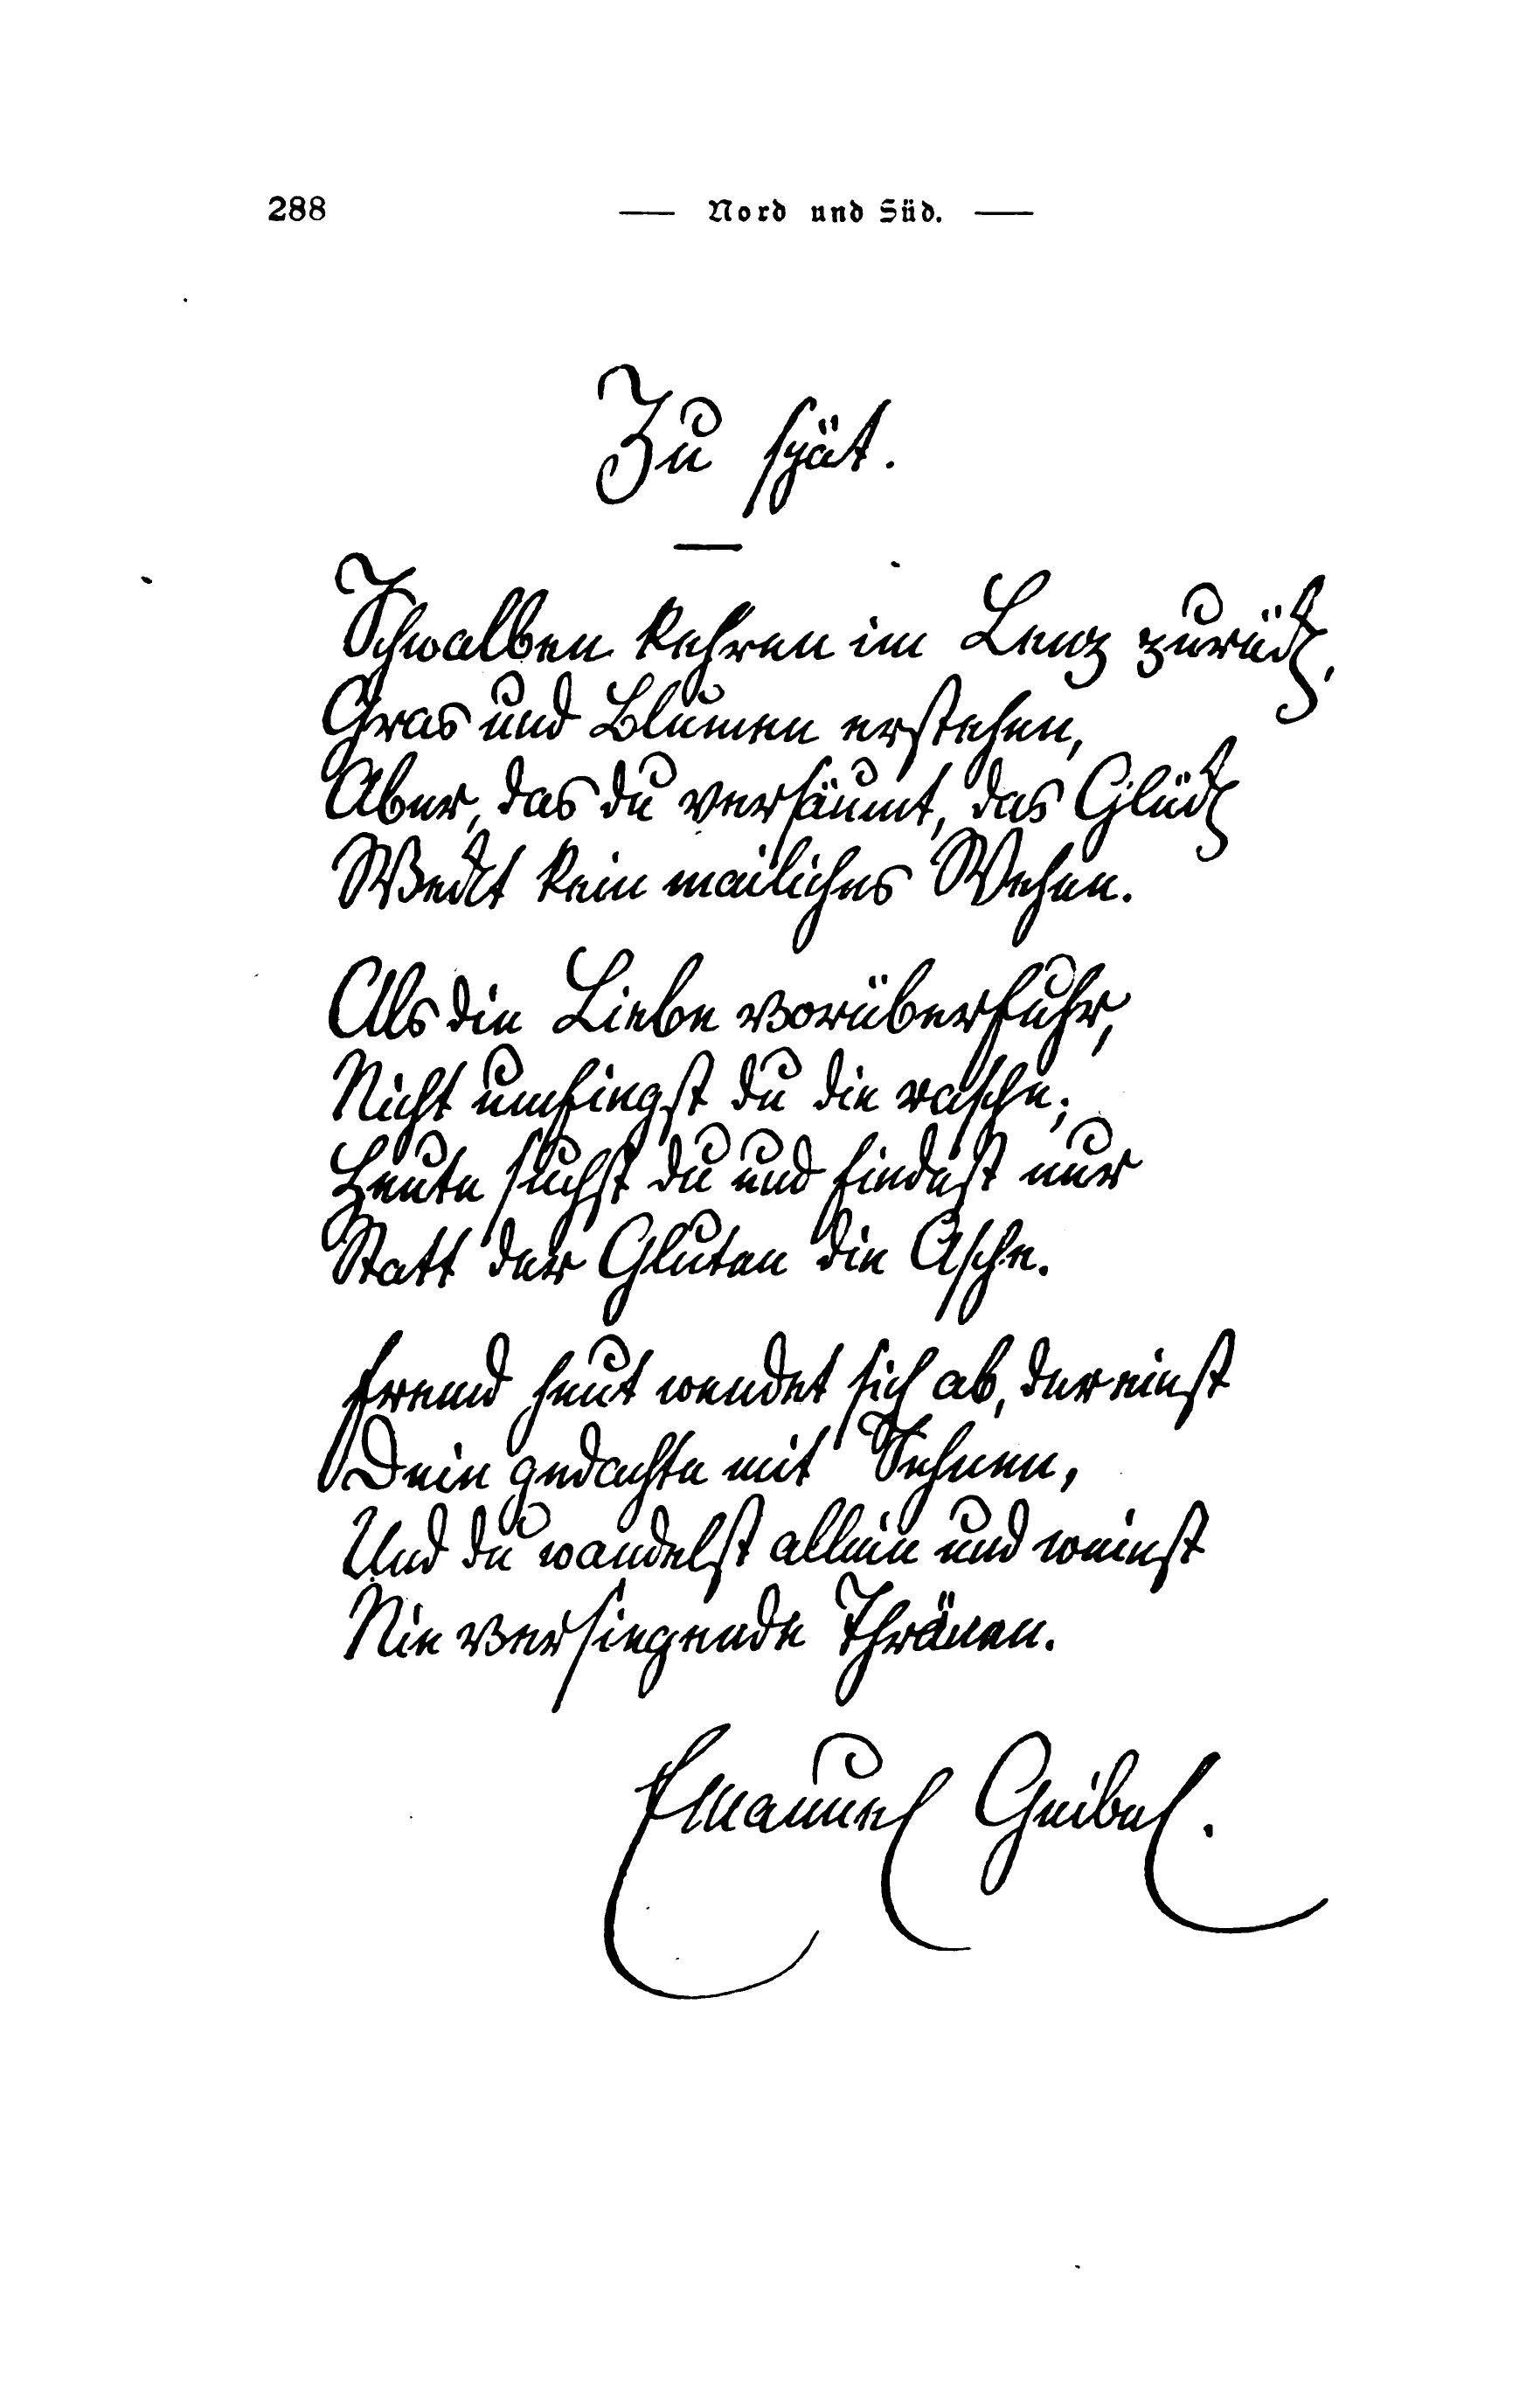 288
— Nord und Süd. —
Zu spät.
Schwalben kehren im Lenz zurück,
Gras und Blumen erstehen,
Aber, das du versäumt, das Glück
Weckt kein mailiches Wehen.
Als die Liebe vorüberfuhr,
Nicht umfingst du die rasche;
Heute suchst du und findest nur
Statt der Gluten die Asche.
Fremd heut wendet sich ab, der einst
Dein gedachte mit Sehnen,
Und du wandelst allein und weinst
Nie versiegende Thränen.
Emanuel Geibel.